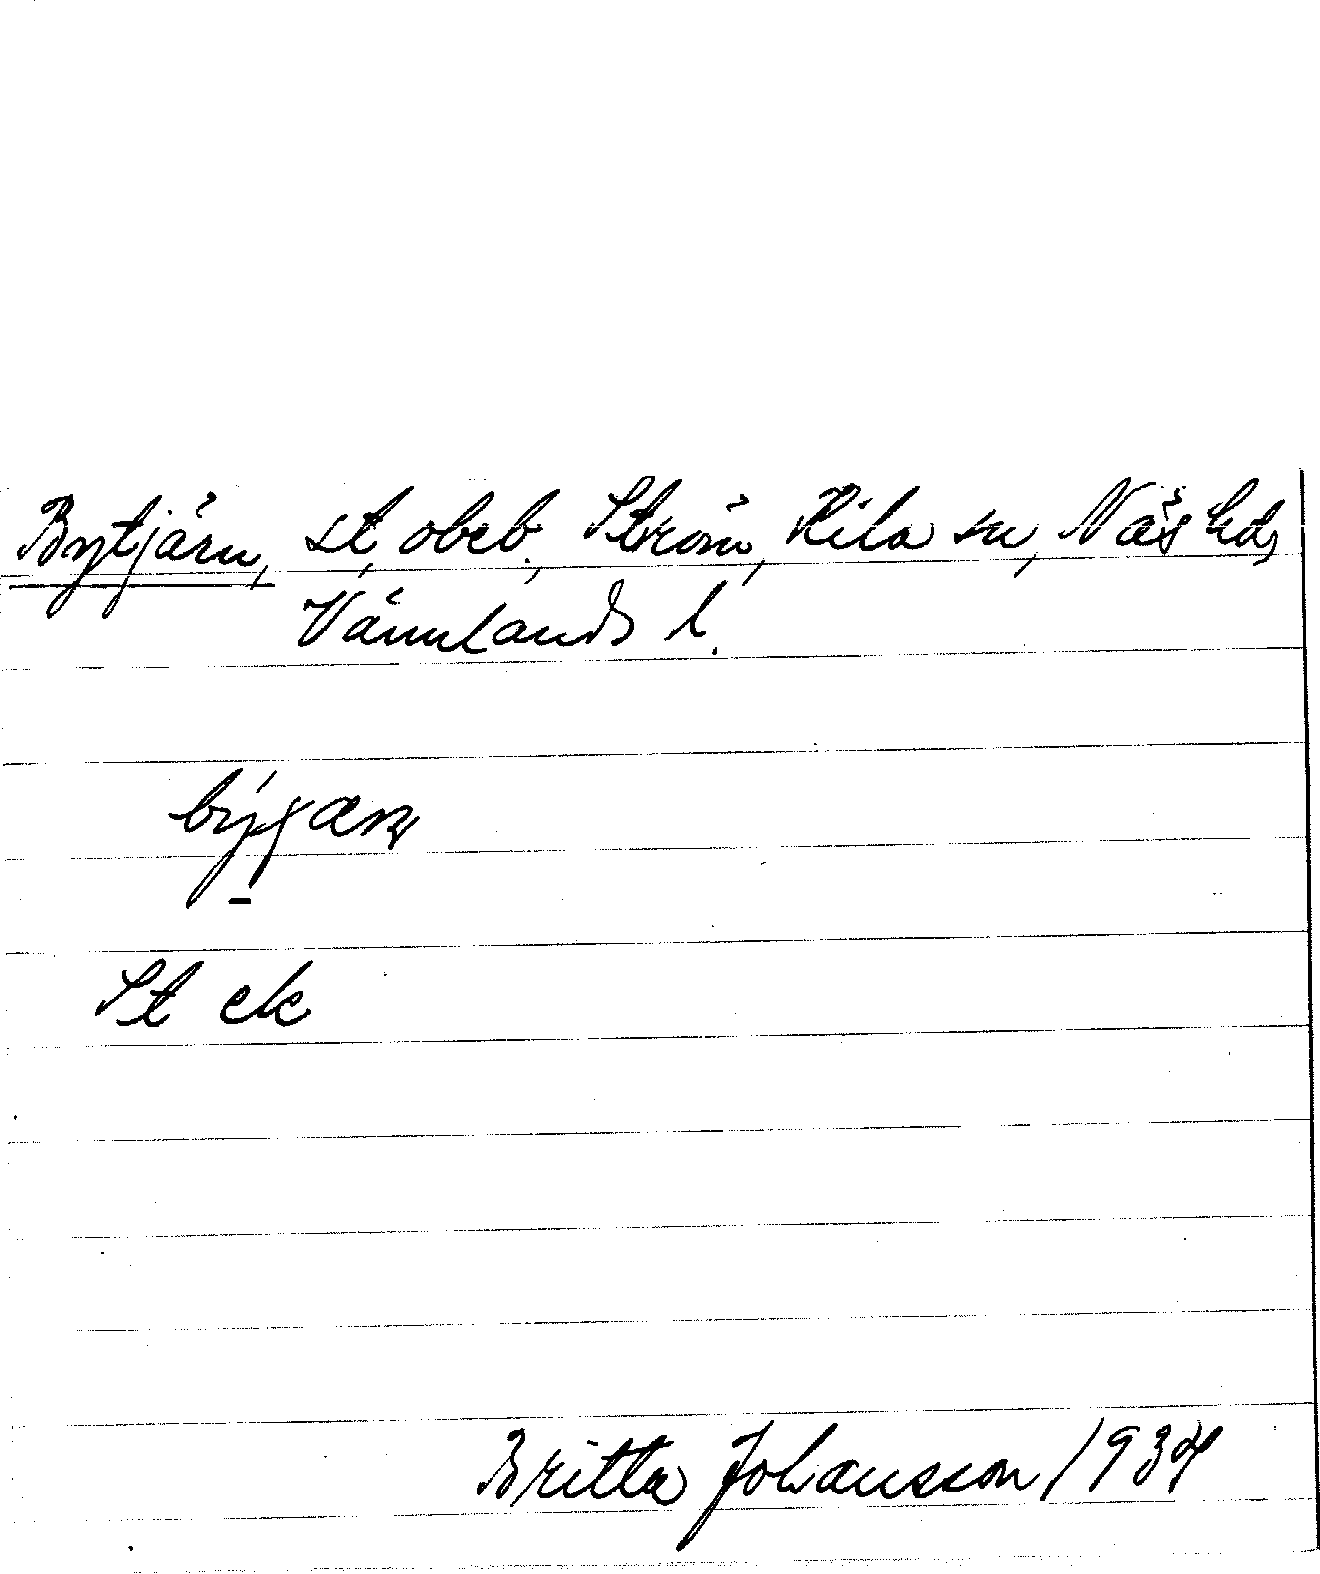 Bytjärn, st, obeb., Ström, Kila sn, Näs hd,
Värmlands l.
St ek
Britta Johansson 1934